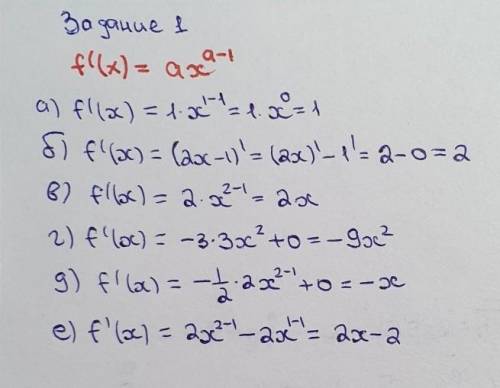 Задание 1
f'(x) = ax^{a-1}
а) f'(x) = 1·x^{1-1} = 1·x^0 = 1
б) f'(x) = (2x-1)' = (2x)' - 1' = 2-0 = 2
в) f'(x) = 2·x^{2-1} = 2x
г) f'(x) = -3·3x^2+0 = -9x^2
д) f'(x) = -\frac{1}{2}·2x^{2-1}+0 = -x
е) f'(x) = 2x^{2-1} - 2x^{1-1} = 2x-2